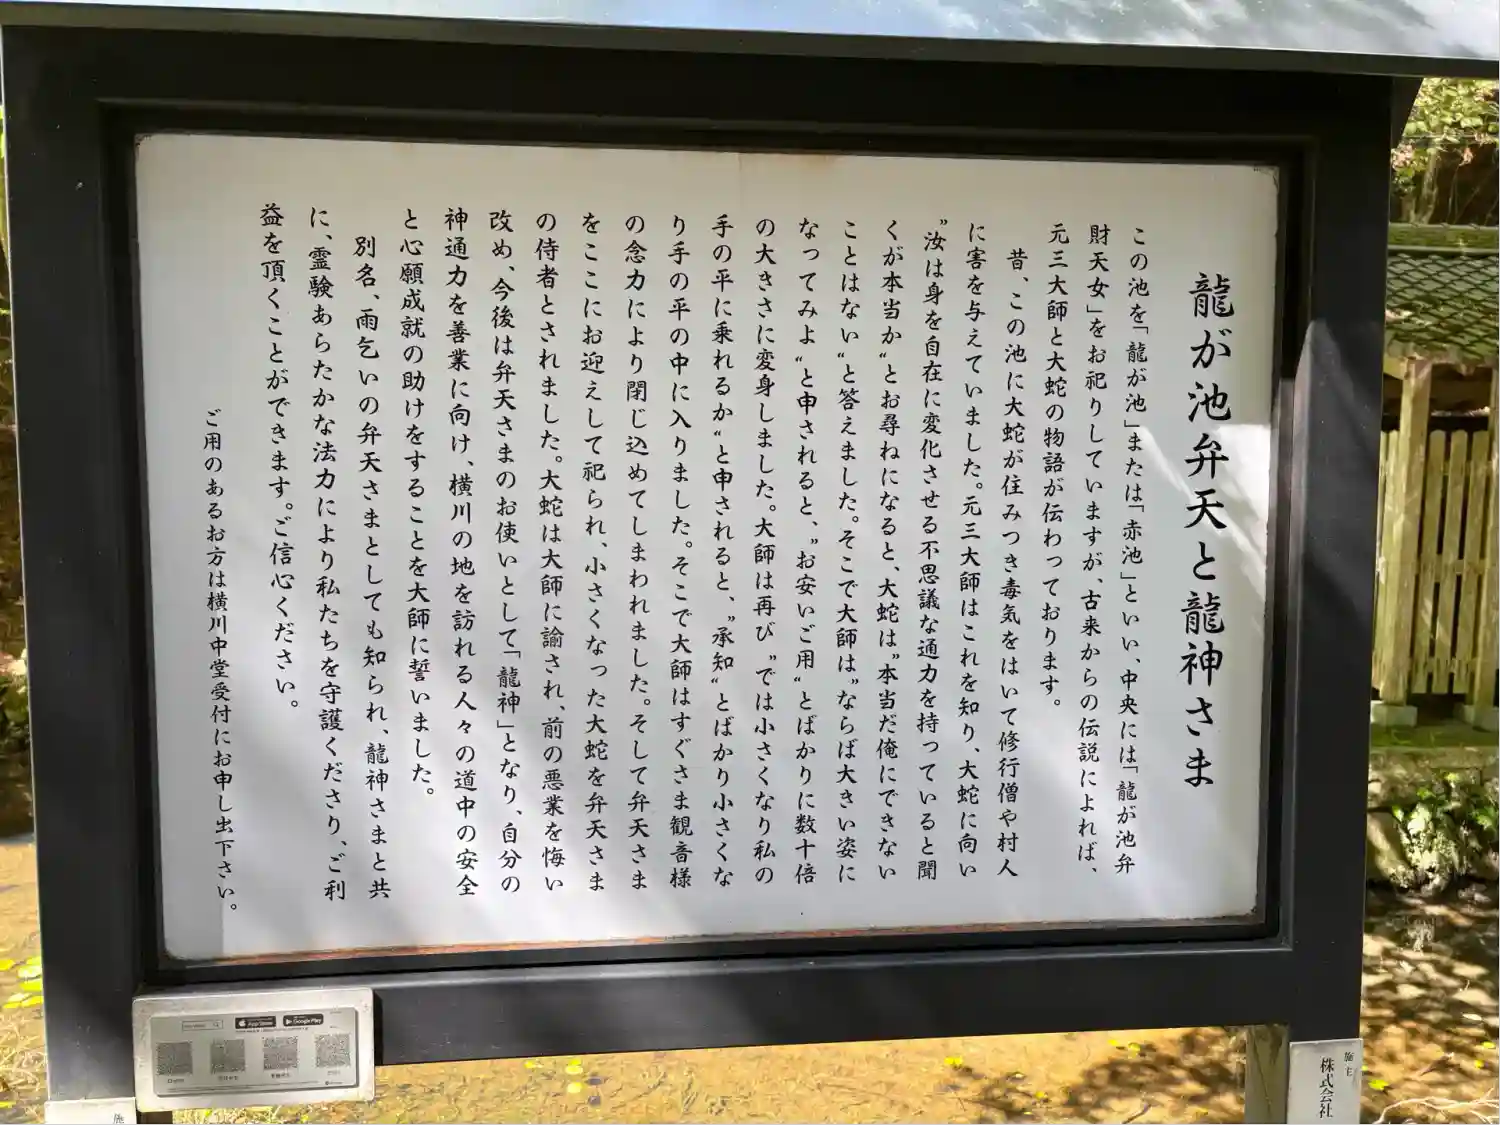 龍が池弁天と龍神さま
この池を「龍が池」または「赤池」といい、中央には「龍が池弁
財天女」をお祀りしていますが、古来からの伝説によれば、
元三大師と大蛇の物語が伝わっております。
昔、この池に大蛇が住みつき毒気をはいて修行僧や村人
に害を与えていました。元三大師はこれを知り、大蛇に向い
〝汝は身を自在に変化させる不思議な通力を持っていると聞
くが本当か〟とお尋ねになると、大蛇は〝本当だ俺にできない
ことはない〟と答えました。そこで大師は〝ならば大きい姿に
なってみよ〟と申されると、〝お安いご用〟とばかりに数十倍
の大きさに変身しました。大師は再び〝では小さくなり私の
手の平に乗れるか〟と申されると、〝承知〟とばかり小さくな
り手の平の中に入りました。そこで大師はすぐさま観音様
の念力により閉じ込めてしまわれました。そして弁天さま
をここにお迎えして祀られ、小さくなった大蛇を弁天さま
の侍者とされました。大蛇は大師に諭され、前の悪業を悔い
改め、今後は弁天さまのお使いとして「龍神」となり、自分の
神通力を善業に向け、横川の地を訪れる人々の道中の安全
と心願成就の助けをすることを大師に誓いました。
別名、雨乞いの弁天さまとしても知られ、龍神さまと共
に、霊験あらたかな法力により私たちを守護くださり、ご利
益を頂くことができます。ご信心ください。
ご用のあるお方は横川中堂受付にお申し出下さい。
App Store
Google Play
施主
株式会社
施